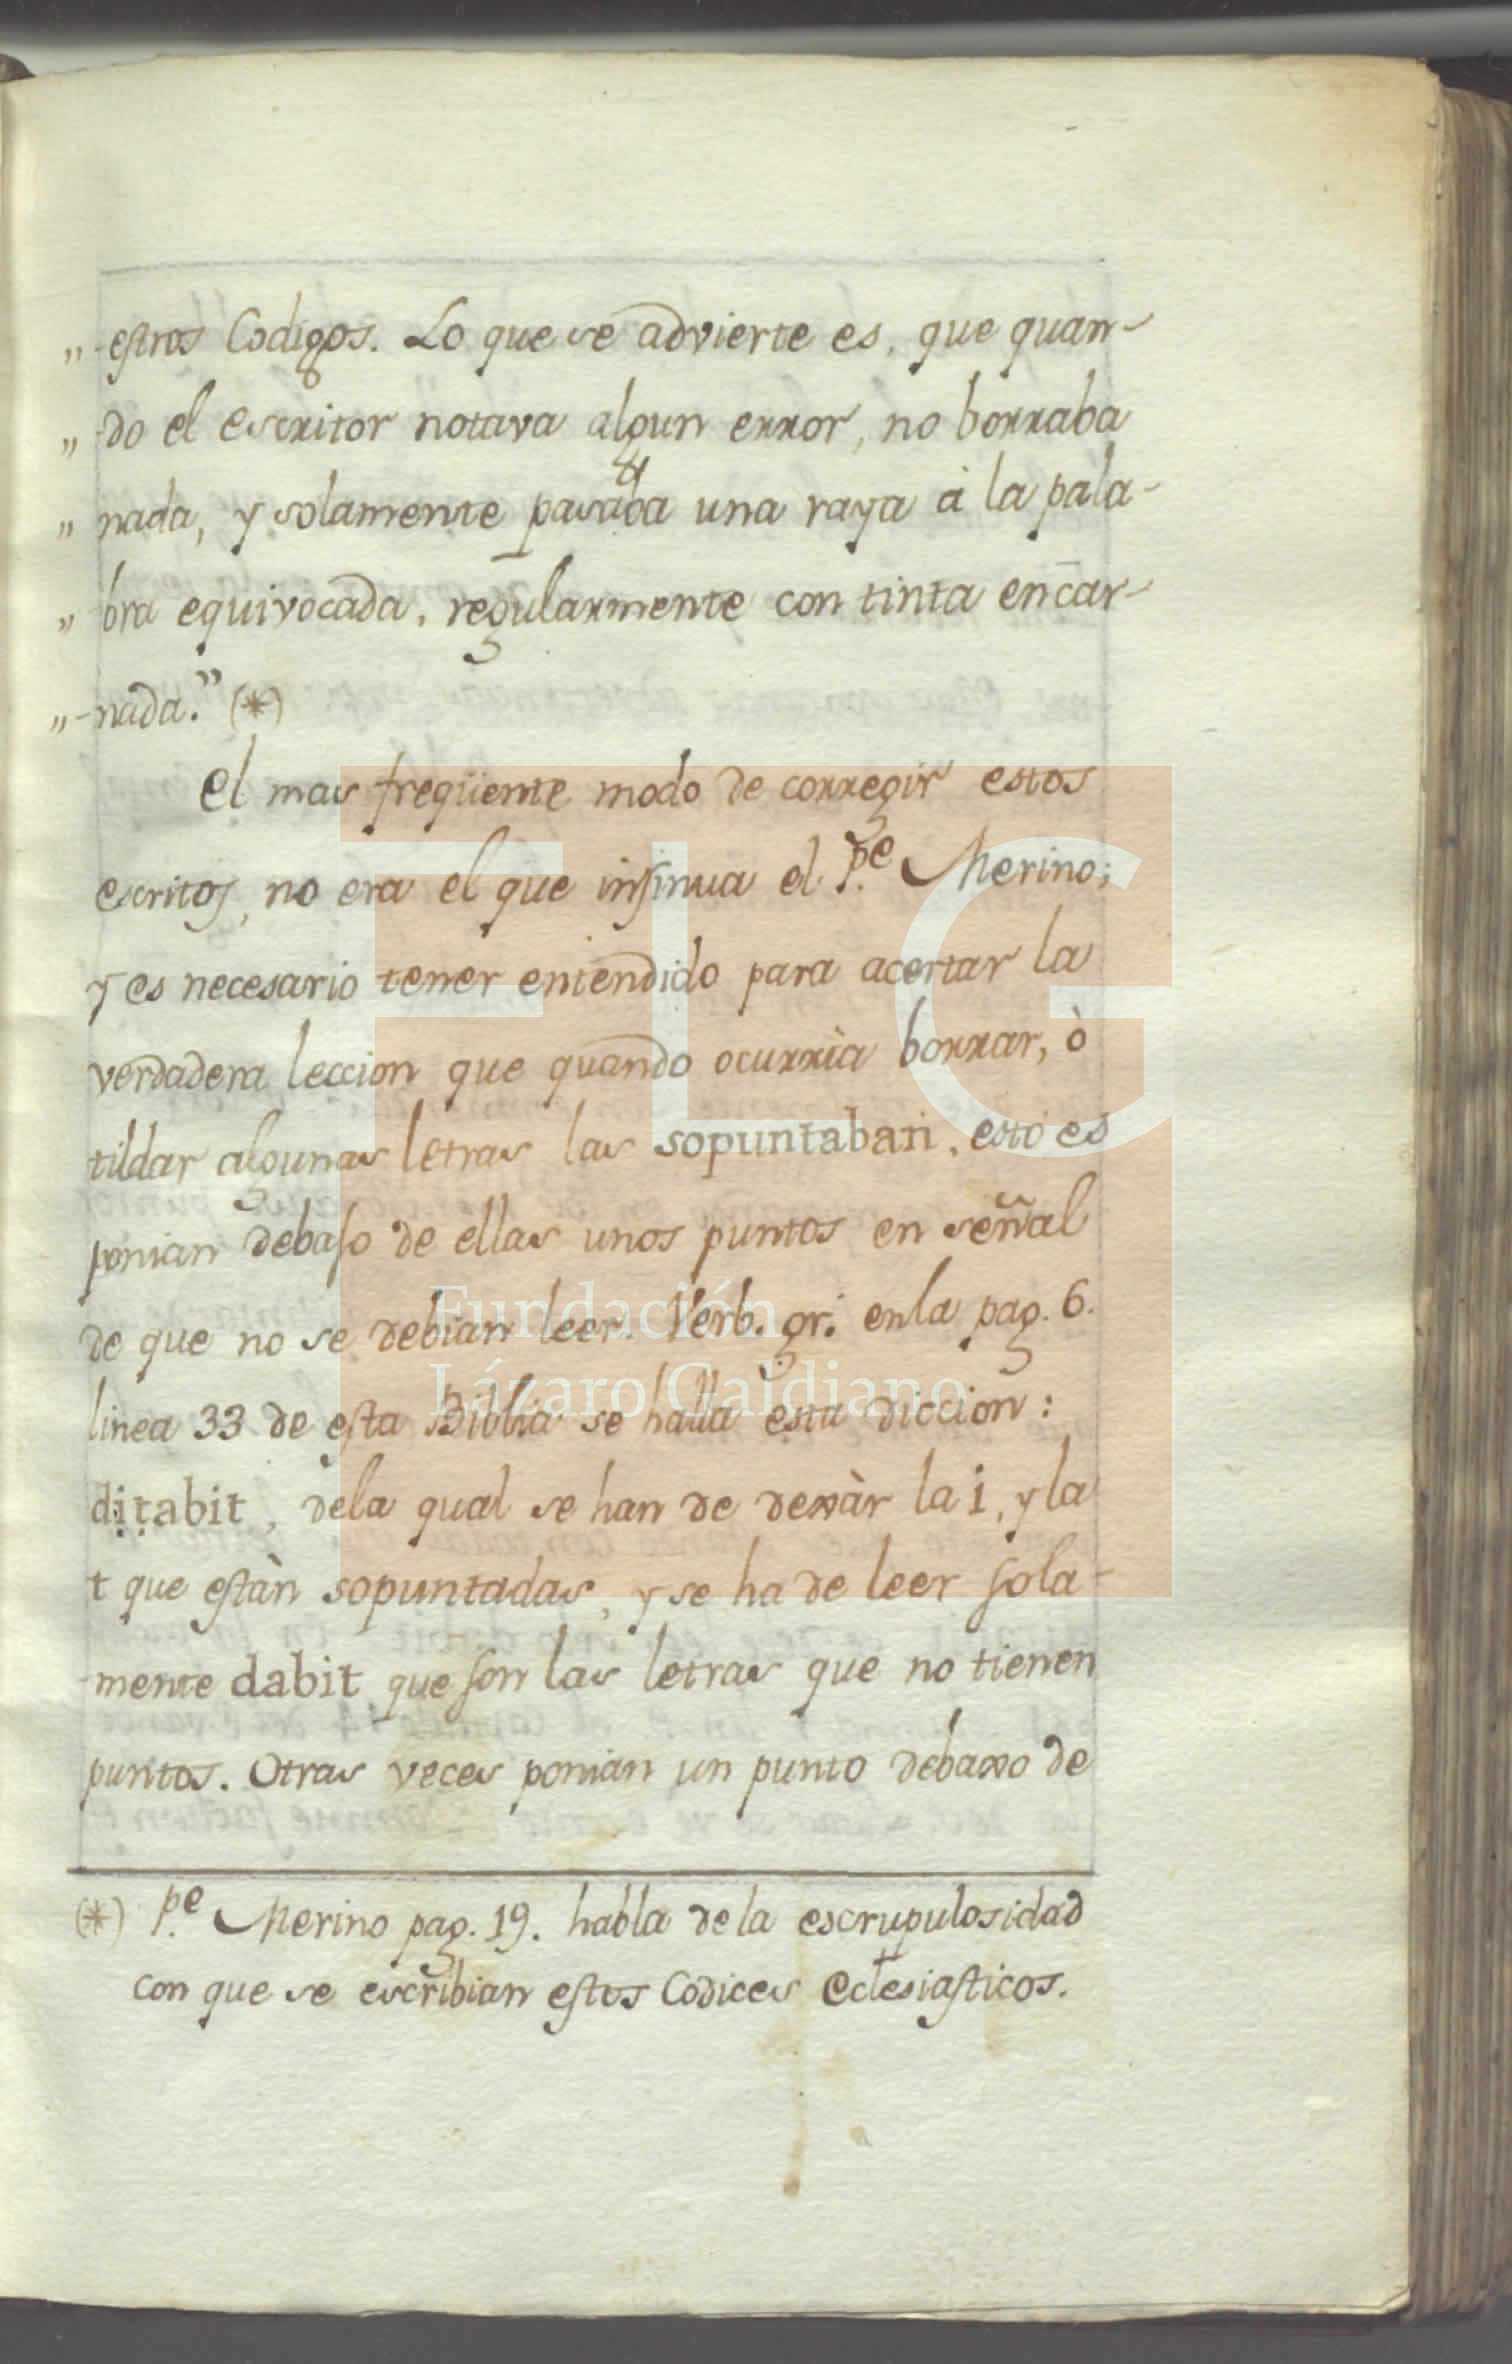 „-estros Codigos. Lo que se advierte es, que quan-
„-do el escritor notava algun error, no borraba
„ nada, y solamente pasaba una raya à la pala-
„-bra equivocada, regularmente con tinta encar-
„-nada.” (*)
El mas freqüente modo de corregir estos
escritos, no era el que insinua el P.e Merino;
y es necesario tener entendido para acertar la
verdadera leccion que quando ocurrìa borrar, ò
tildar algunas letras las sopuntaban, esto es
ponian debaso de ellas unos puntos en señal
de que no se debian leer. Verb. gr. en la pag. 6.
linea 33 de esta Biblia se halla esta diccion:
dịṭabit, dela qual se han de dexàr la i, y la
t que estàn sopuntadas, y se ha de leer sola-
mente dabit que son las letras que no tienen
puntos. Otras veces ponian un punto debaxo de
(*) P.e Merino pag. 19. habla de la escrupulosidad
con que se escribian estos Codices eclesiasticos.
FLG
Fundación
Lázaro Galdiano